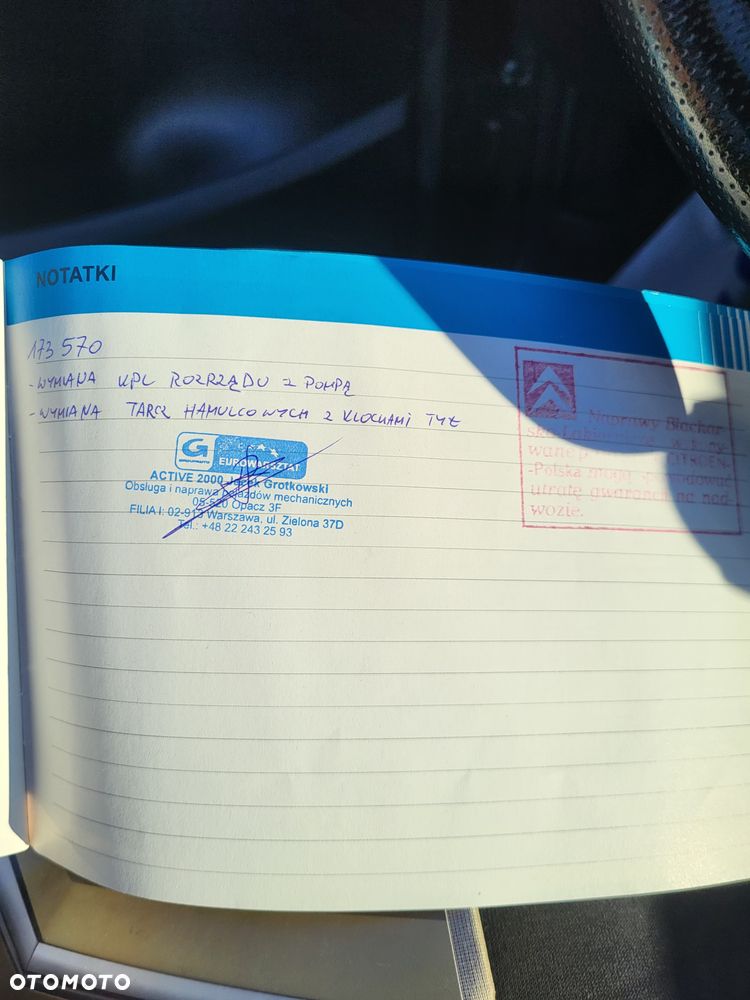 NOTATKI
173 570
- WYMIANA KPL ROZRZĄDU Z POMPĄ
- WYMIANA TARCZ HAMULCOWYCH Z KLOCKAMI TYŁ
G
EUROWARSZTAT
ACTIVE 2000 Jacek Grotkowski
Obsługa i naprawa pojazdów mechanicznych
05-520 Opacz 3F
FILIA I: 02-913 Warszawa, ul. Zielona 37D
Tel.: +48 22 243 25 93
Naprawy Blachar
sko Lakier
wane p CITROEN-
-Polska mogą spowodować
utratę gwarancji na nad
wozie.
OTOMOTO